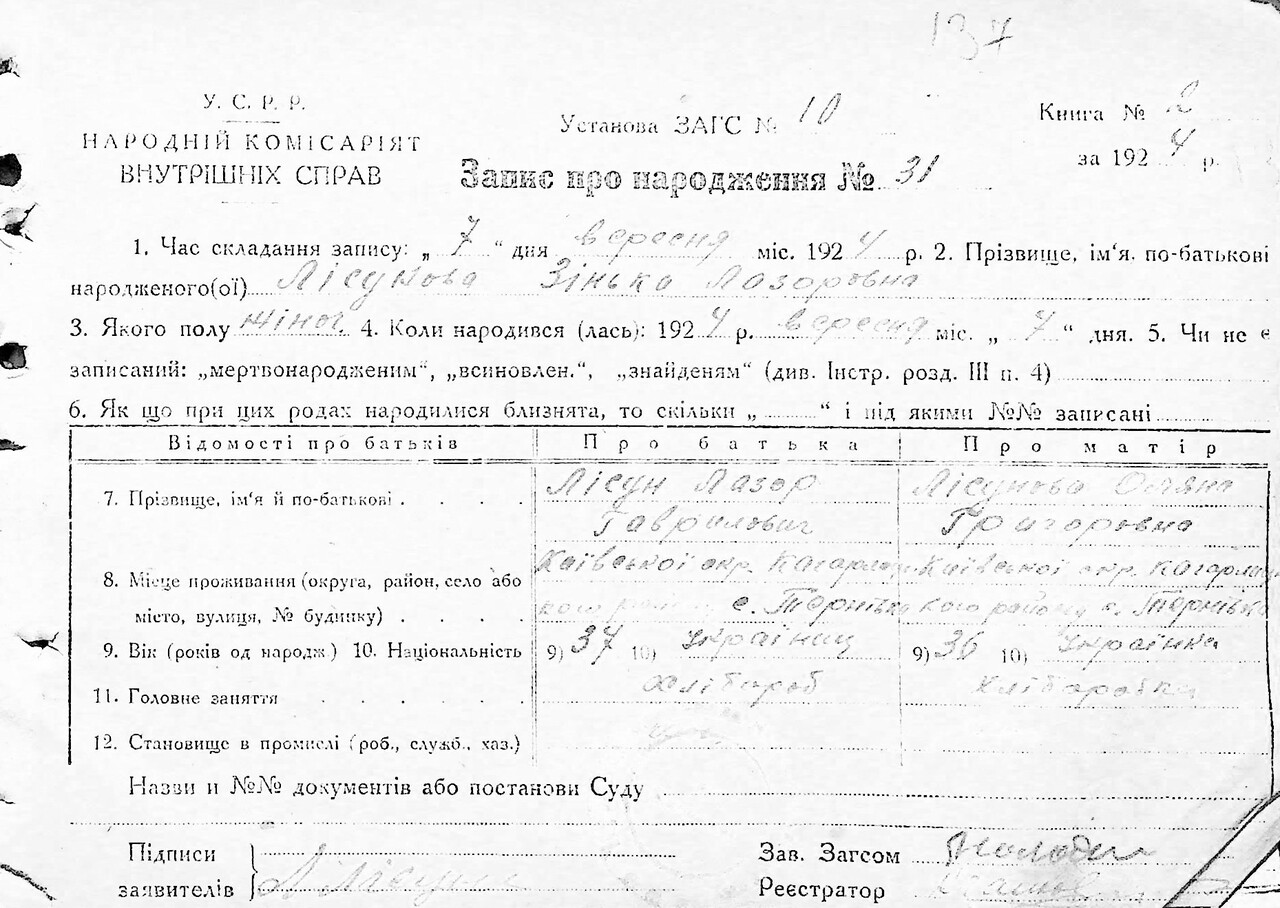 137
У. С. Р. Р.
НАРОДНІЙ КОМІСАРІЯТ
ВНУТРІШНІХ СПРАВ
Установа ЗАГС № 10
Книга № 2
за 1924 р.
Запис про народження № 31
1. Час складання запису: „ 7 “ дня вересня міс. 1924 р. 2. Прізвище, ім‘я. по-батькові
народженого(ої) Лісунова Зінька Лазоровна
3. Якого полу жіноч. 4. Коли народився (лась): 1924 р. вересня міс. „ 7 “ дня. 5. Чи не є
записаний: „мертвонародженим“, „всиновлен.“, „знайденям“ (див. Інстр. розд. III п. 4)
6. Як що при цих родах народилися близнята, то скільки „ “ і під якими №№ записані
Відомості про батьків Про батька Про матір
7. Прізвище, ім‘я й по-батькові . . . . Лісун Лазор Лісунова Оляна
Гаврилович Григоровна
8. Місце проживання (округа, район, село або Київської окр. Кагарлиц Київської окр. Кагарлиц
місто, вулиця, № будинку) . . . . кого району с. кого району с.
9. Вік (років од народж.) 10. Національність 9) 37 10) Українец 9) 36 10) Українка
11. Головне заняття . . . . . Хлібороб Хліборобка
12. Становище в промислі (роб., служб., хаз.)
Назви и №№ документів або постанови Суду
Підписи
заявителів Лісун
Зав. Загсом
Реєстратор